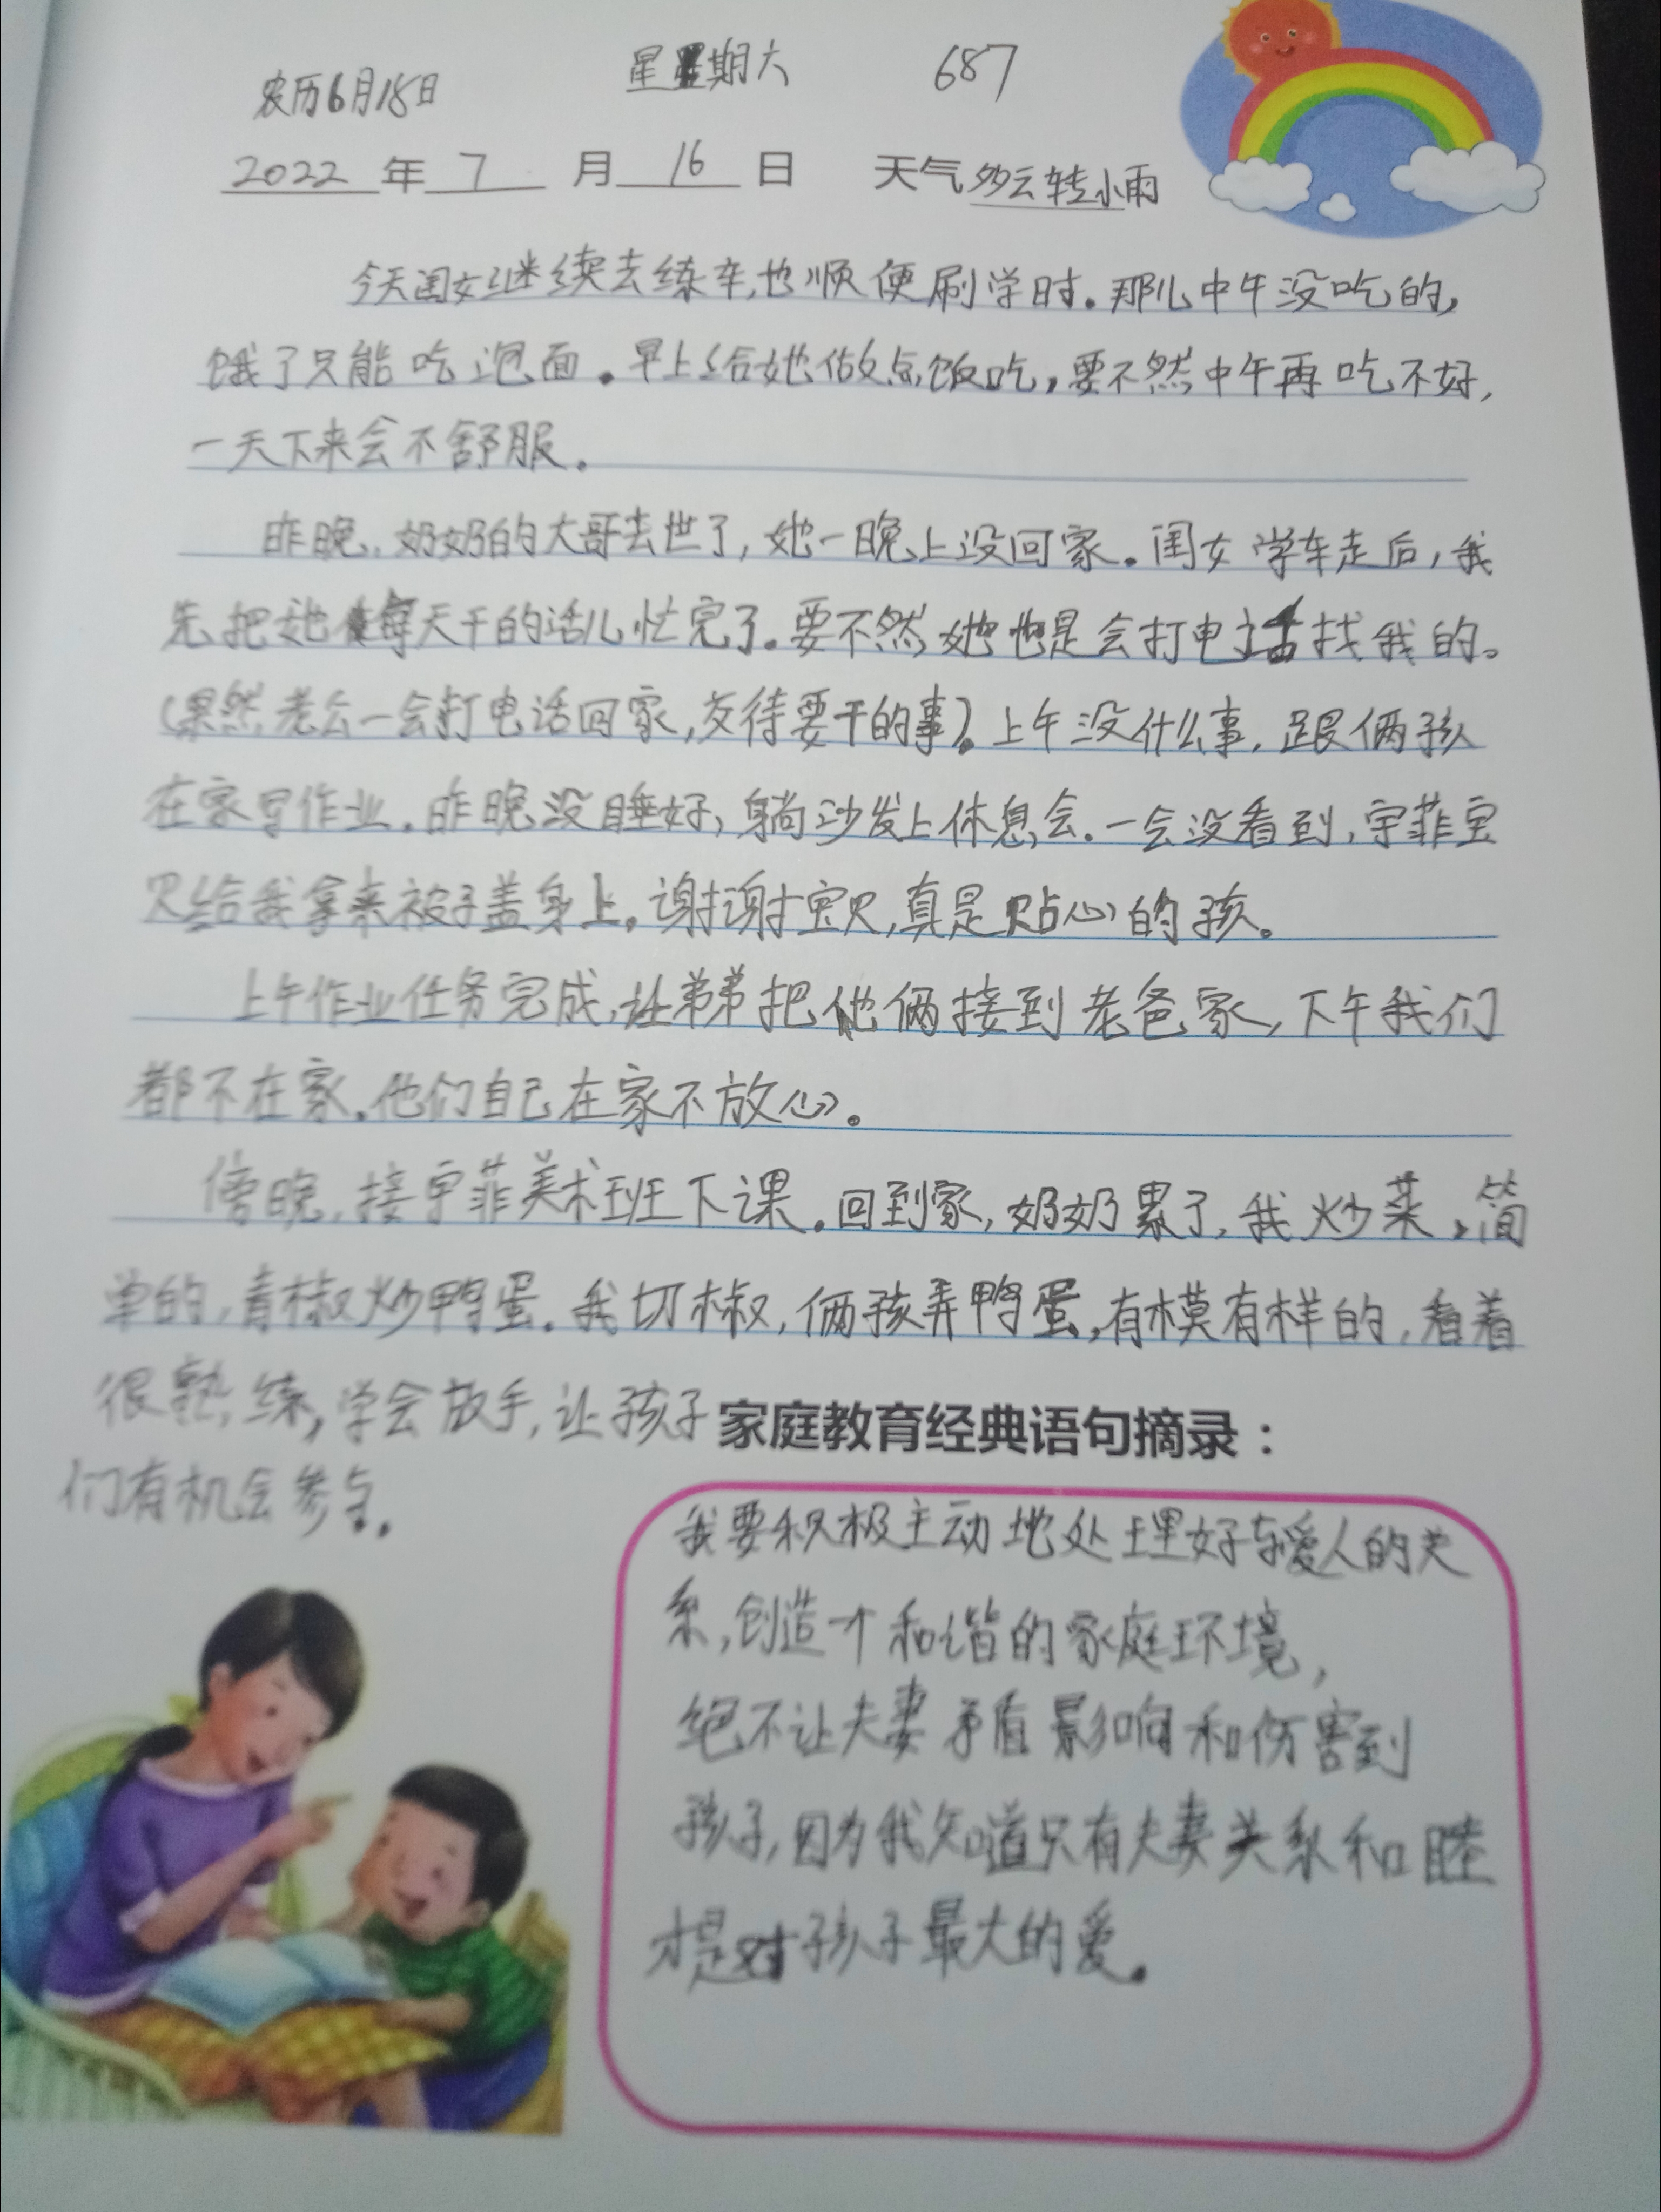 农历6月18日 星期六 687
2022 年 7 月 16 日 天气 多云转小雨
今天闺女继续去练车,也顺便刷学时。那儿中午没吃的,
饿了只能吃泡面。早上给她做点饭吃,要不然中午再吃不好,
一天下来会不舒服。
昨晚,奶奶的大哥去世了,她一晚上没回家。闺女学车走后,我
先把她每天干的活儿忙完了。要不然她也是会打电话找我的。
(果然老公一会打电话回家,交待要干的事)。上午没什么事,跟俩孩
在家写作业。昨晚没睡好,躺沙发上休息会。一会没看到,宇菲宝
贝给我拿来被子盖身上。谢谢宝贝,真是贴心的孩。
上午作业任务完成,让弟弟把他俩接到老爸家,下午我们
都不在家。他们自己在家不放心。
傍晚,接宇菲美术班下课。回到家,奶奶累了,我炒菜,简
单的,青椒炒鸭蛋。我切椒,俩孩弄鸭蛋,有模有样的,看着
很熟练,学会放手,让孩子
们有机会参与。
家庭教育经典语句摘录:
我要积极主动地处理好与爱人的关
系,创造一个和谐的家庭环境,
绝不让夫妻矛盾影响和伤害到
孩子,因为我知道只有夫妻关系和睦
才是对孩子最大的爱。